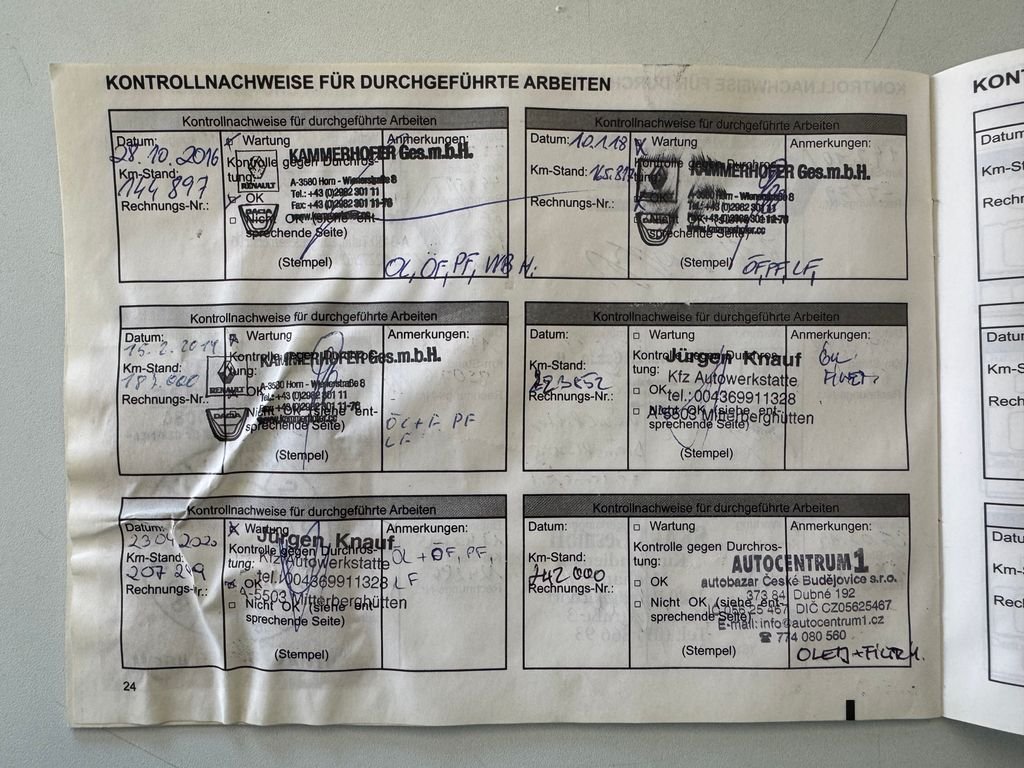 KONTROLLNACHWEISE FÜR DURCHGEFÜHRTE ARBEITEN
Kontrollnachweise für durchgeführte Arbeiten
Datum:
28.10.2016
Km-Stand:
144 897
Rechnungs-Nr.:
Wartung
Kontrolle gegen Durchros-
tung:
OK
Nicht OK (siehe ent-
sprechende Seite)
(Stempel)
Anmerkungen:
KAMMERHOFER Ges.m.b.H.
RENAULT
DACIA
A-3580 Horn - Wienerstraße 8
Tel.: +43 (0)2982 301 11
Fax: +43 (0)2982 301 11-76
www.kammerhofer.cc
ÖL, ÖF, PF,
Kontrollnachweise für durchgeführte Arbeiten
Datum:
10.1.18
Km-Stand:
Rechnungs-Nr.:
Wartung
Kontrolle gegen Durchros-
tung:
OK
Nicht OK (siehe ent-
sprechende Seite)
(Stempel)
Anmerkungen:
KAMMERHOFER Ges.m.b.H.
A-3580 Horn - Wienerstraße 8
Tel.: +43 (0)2982 301 11
Fax: +43 (0)2982 301 11-76
www.kammerhofer.cc
ÖF, PF, LF,
Kontrollnachweise für durchgeführte Arbeiten
Datum:
Km-Stand:
Rechnungs-Nr.:
Wartung
Kontrolle gegen Durchros-
tung:
OK
Nicht OK (siehe ent-
sprechende Seite)
(Stempel)
Anmerkungen:
KAMMERHOFER Ges.m.b.H.
RENAULT
DACIA
A-3580 Horn - Wienerstraße 8
Tel.: +43 (0)2982 301 11
Fax: +43 (0)2982 301 11-76
www.kammerhofer.cc
ÖL+F PF
LF
Kontrollnachweise für durchgeführte Arbeiten
Datum:
Km-Stand:
223652
Rechnungs-Nr.:
Wartung
Kontrolle gegen Durchros-
tung:
OK
Nicht OK (siehe ent-
sprechende Seite)
(Stempel)
Anmerkungen:
Jürgen Knauf
Kfz Autowerkstatte
tel.:004369911328
A-5503 Mitterberghütten
Kontrollnachweise für durchgeführte Arbeiten
Datum:
23 04 2020
Km-Stand:
207 299
Rechnungs-Nr.:
Wartung
Kontrolle gegen Durchros-
tung:
OK
Nicht OK (siehe ent-
sprechende Seite)
(Stempel)
Anmerkungen:
Jürgen Knauf
Kfz Autowerkstatte
tel.:004369911328
A-5503 Mitterberghütten
ÖL + ÖF, PF,
LF
Kontrollnachweise für durchgeführte Arbeiten
Datum:
Km-Stand:
242 000
Rechnungs-Nr.:
Wartung
Kontrolle gegen Durchros-
tung:
OK
Nicht OK (siehe ent-
sprechende Seite)
(Stempel)
Anmerkungen:
AUTOCENTRUM1
autobazar České Budějovice s.r.o.
373 84 Dubné 192
IČ 056 25 467 DIČ CZ05625467
E-mail: info@autocentrum1.cz
☎ 774 080 560
OLEJ+FILTRY.
24
KON
Datum
Km-S
Rechn
Datu
Km-
Rech
Datu
Km-
Recl